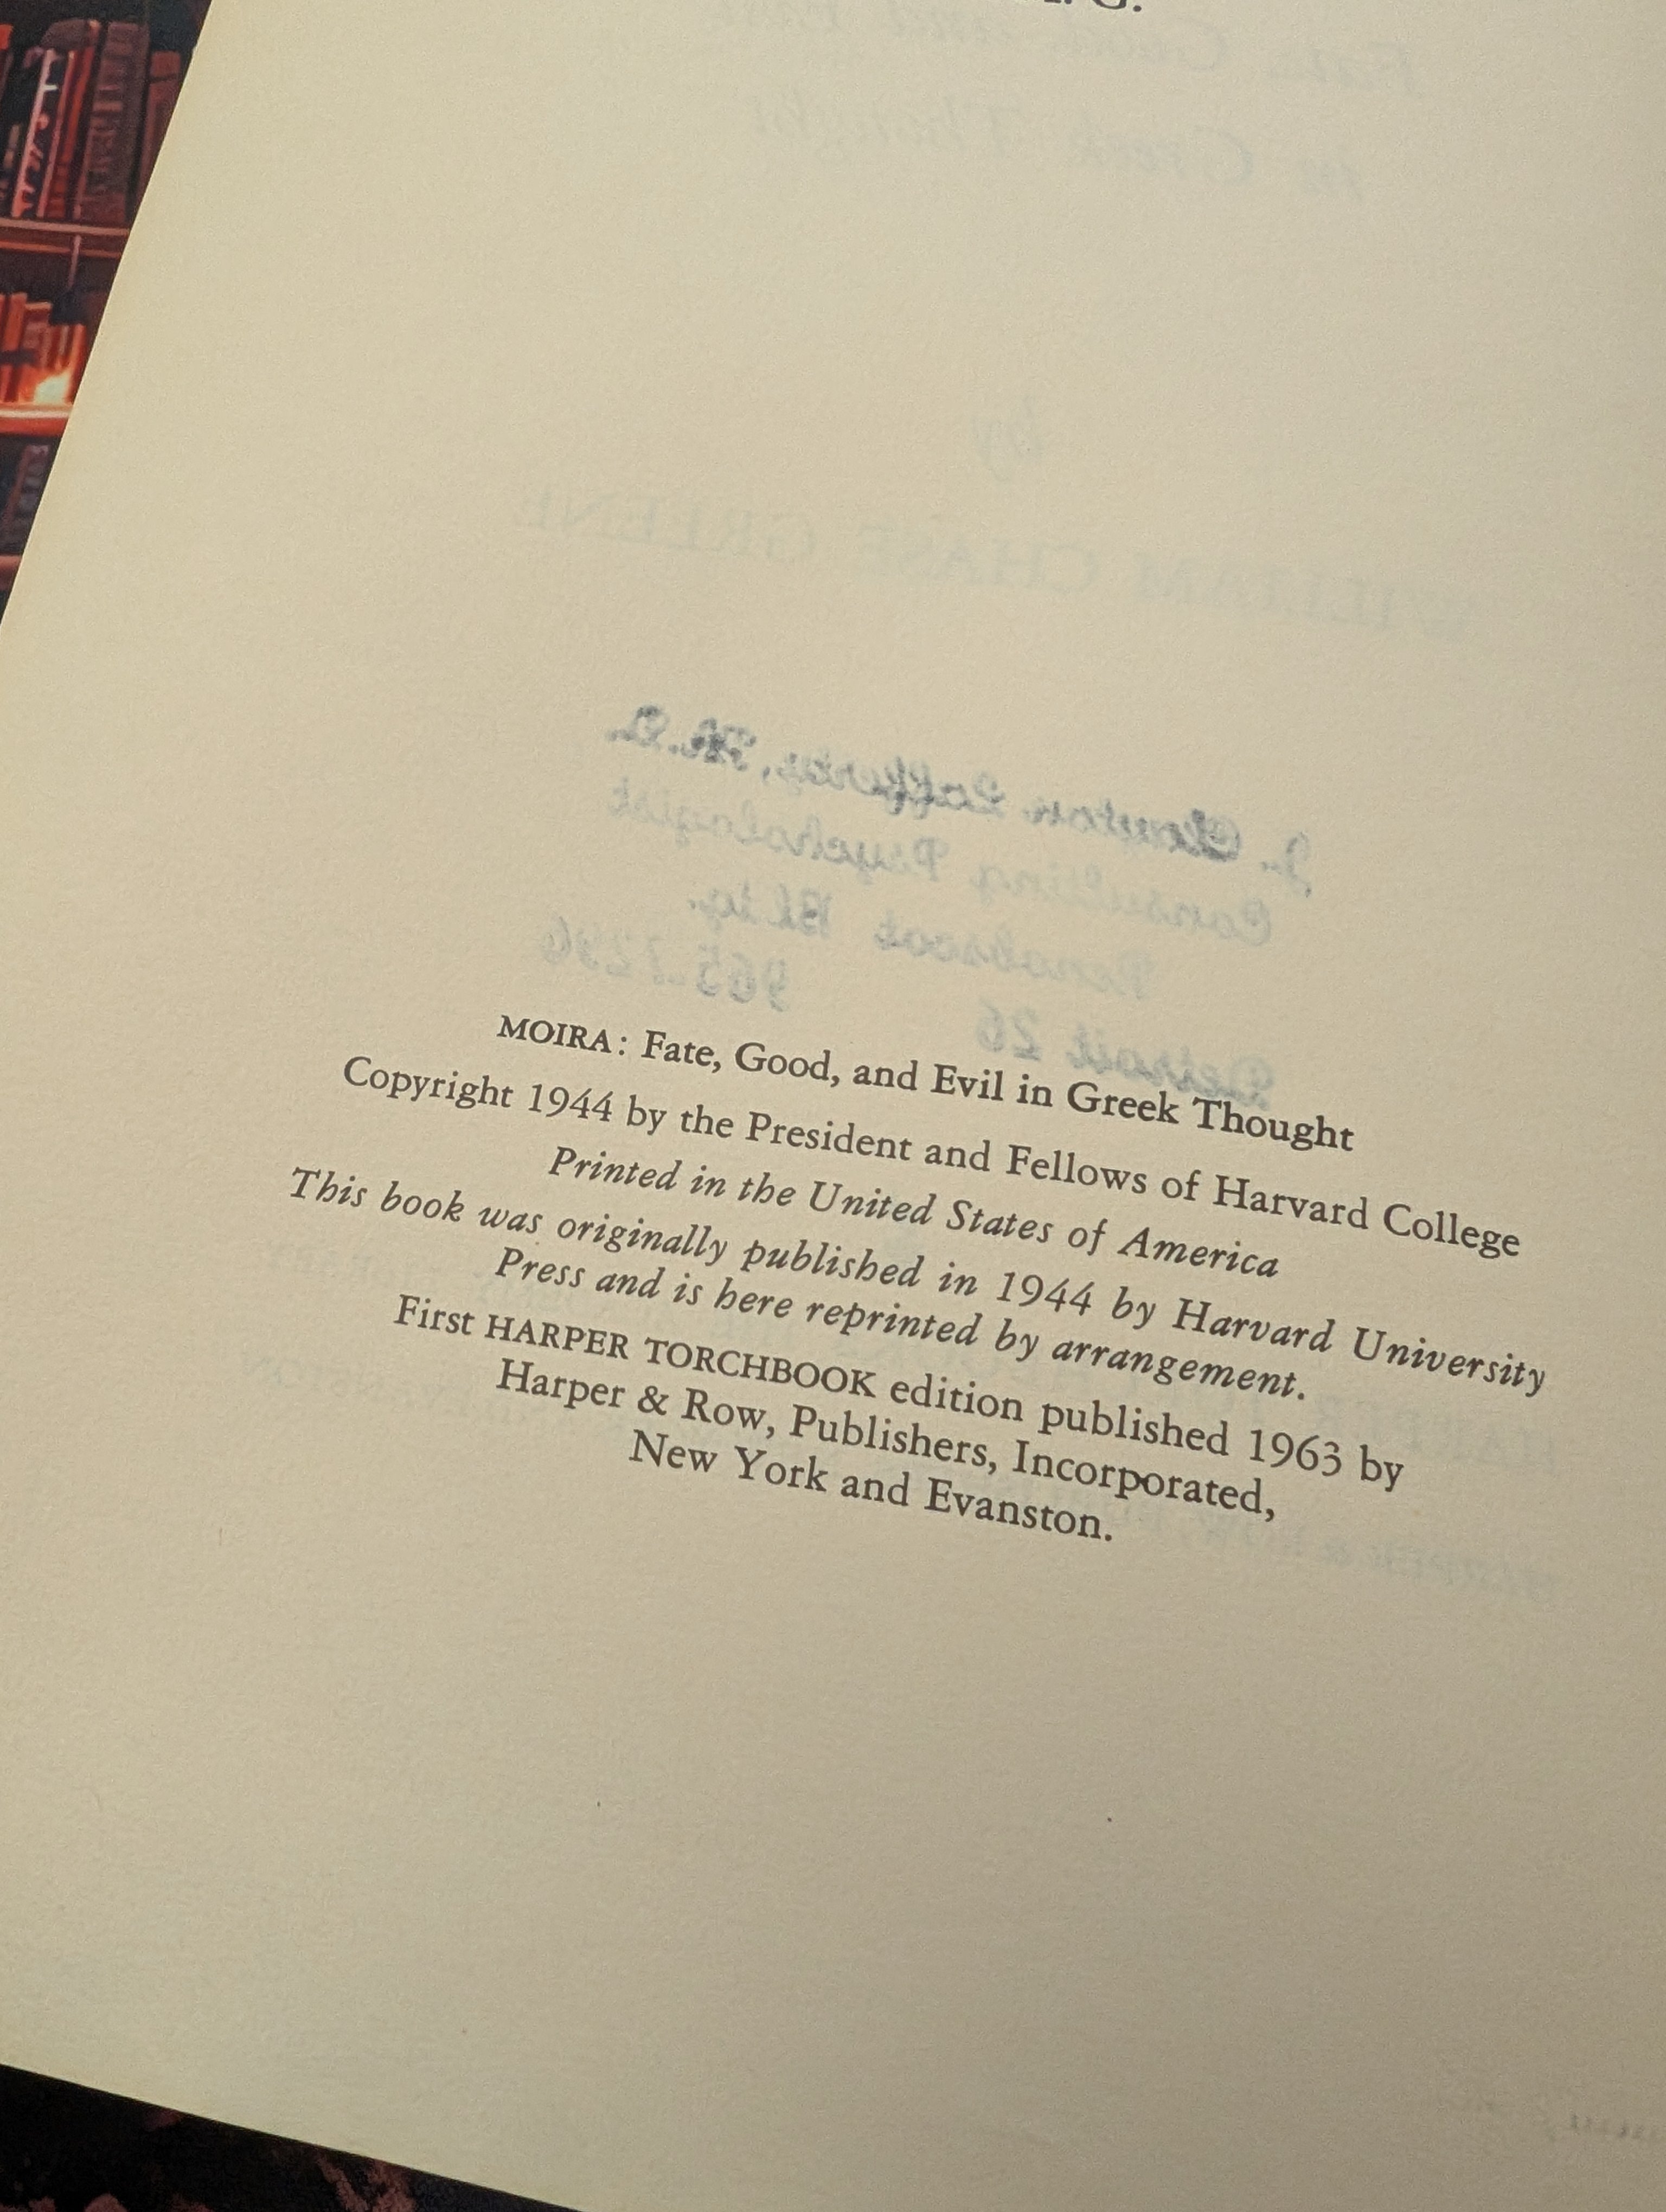 . G.
by
WILLIAM CHASE GREENE
J. Clayton Lafferty, Ph.D.
Consulting Psychologist
Penobscot Bldg.
Detroit 26 965-7296
MOIRA: Fate, Good, and Evil in Greek Thought
Copyright 1944 by the President and Fellows of Harvard College
Printed in the United States of America
This book was originally published in 1944 by Harvard University
Press and is here reprinted by arrangement.
First HARPER TORCHBOOK edition published 1963 by
Harper & Row, Publishers, Incorporated,
New York and Evanston.